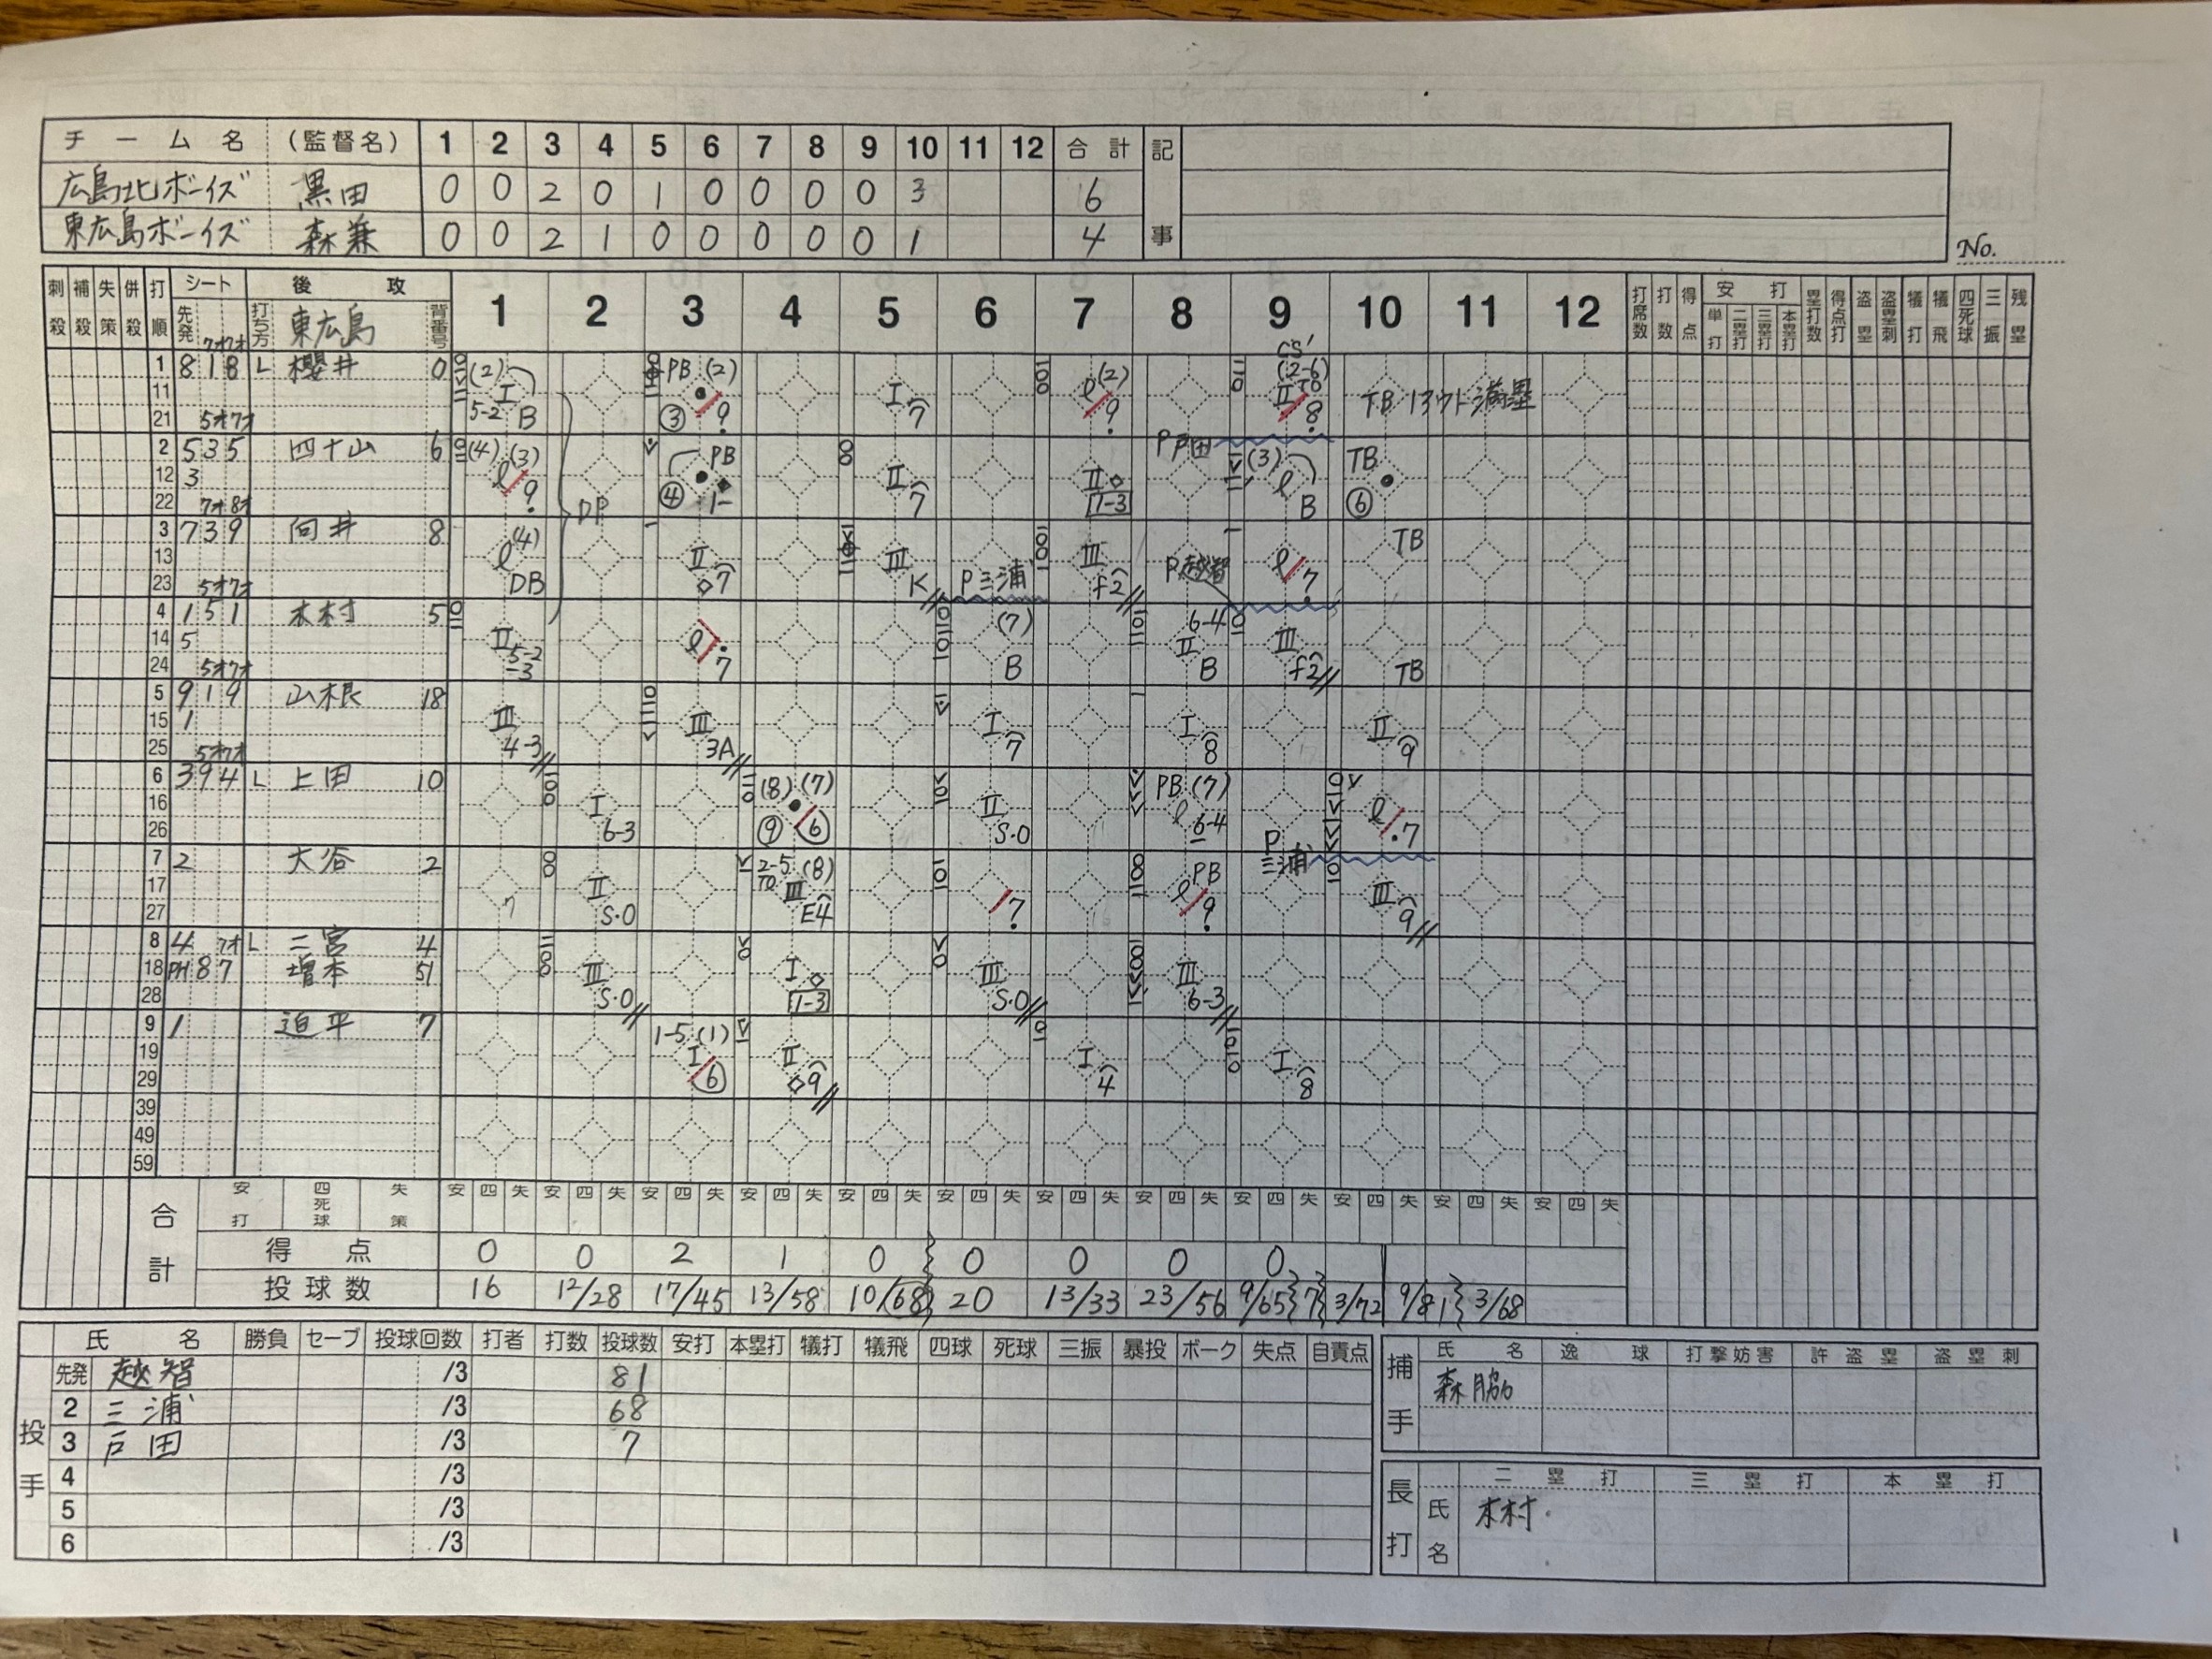 チーム名 (監督名) 1 2 3 4 5 6 7 8 9 10 11 12 合計 記事
広島北ボーイズ 黒田 0 0 2 0 1 0 0 0 0 3 6
東広島ボーイズ 森兼 0 0 2 1 0 0 0 0 0 1 4
No.
刺殺 補殺 失策 併殺 打順 シート 先発 打ち方 後攻 東広島 背番号 1 2 3 4 5 6 7 8 9 10 11 12 打席数 打数 得点 安打 単打 二塁打 三塁打 本塁打 塁打数 得点打 盗塁 盗塁刺 犠打 犠飛 四死球 三振 残塁
1 8 1 8 L 櫻井 0 (2) I 5-2 B PB (2) ③ 9 I 7 (2) 9 CS' (2-6) TO II 8 TB 1アウト満塁
11
21
2 5 3 5 四十山 6 (4) (3) 9 DP PB ④ 1- II 7 II 1-3 P戸田 (3) B TB ⑥
12 3
22
3 7 3 9 向井 8 (4) DB II 7 III K P三浦 III f2 P越智 7 TB
13
23
4 1 5 1 木村 5 II 5-2-3 7 (7) B 6-4 II B III f2 TB
14 5
24
5 9 1 9 山根 18 III 4-3 III 3A I 7 I 8 II 9
15 1
25
6 3 9 4 L 上田 10 I 6-3 (8) (7) ⑨ ⑥ II S・O PB (7) 6-4 7
16
26
7 2 大谷 2 II S・O 2-5 (8) TO III E4 7 PB 9 P三浦 III 9
17
27
8 4 L 二宮 4 III S・O I 1-3 III S・O III 6-3
18 PH 8 7 増本 51
28
9 1 迫平 7 1-5 (1) I ⑥ II 9 I 4 I 8
19
29
39
49
59
合計 安打 四死球 失策 安 四 失 安 四 失 安 四 失 安 四 失 安 四 失 安 四 失 安 四 失 安 四 失 安 四 失 安 四 失 安 四 失 安 四 失
得点 0 0 2 1 0 0 0 0 0
投球数 16 12/28 17/45 13/58 10/68 20 13/33 23/56 9/65 7 3/72 9/81 3/68
投手 氏名 勝負 セーブ 投球回数 打者 打数 投球数 安打 本塁打 犠打 犠飛 四球 死球 三振 暴投 ボーク 失点 自責点
先発 越智 /3 81
2 三浦 /3 68
3 戸田 /3 7
4 /3
5 /3
6 /3
捕手 氏名 逸球 打撃妨害 許盗塁 盗塁刺
森脇
長打 氏名 二塁打 三塁打 本塁打
木村